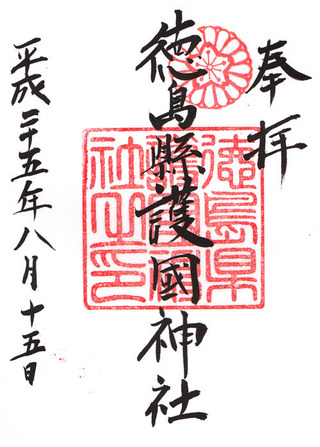 奉拝
徳島縣護國神社
徳島県護國神社之印
平成二十五年八月十五日